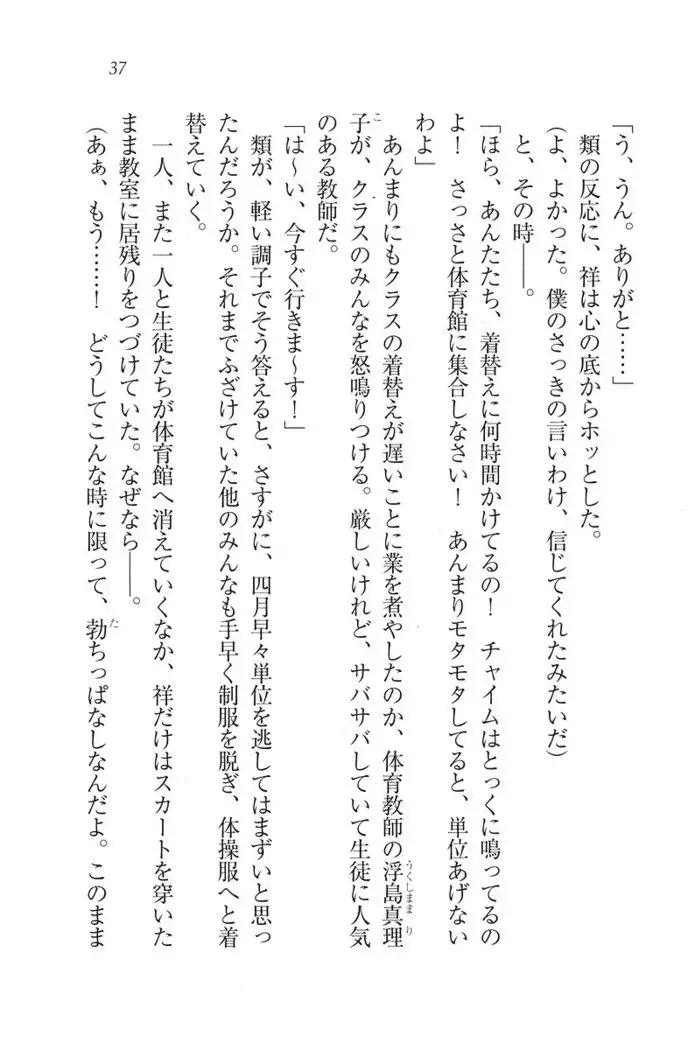 37
「う、うん。ありがと……」
類の反応に、祥は心の底からホッとした。
(よ、よかった。僕のさっきの言いわけ、信じてくれたみたいだ)
と、その時――。
「ほら、あんたたち、着替えに何時間かけてるの！　チャイムはとっくに鳴ってるの
よ！　さっさと体育館に集合しなさい！　あんまりモタモタしてると、単位あげない
わよ」
あんまりにもクラスの着替えが遅いことに業を煮やしたのか、体育教師の浮島真理
子が、クラスのみんなを怒鳴りつける。厳しいけれど、サバサバしていて生徒に人気
のある教師だ。
「は～い、今すぐ行きま～す！」
類が、軽い調子でそう答えると、さすがに、四月早々単位を逃してはまずいと思っ
たんだろうか。それまでふざけていた他のみんなも手早く制服を脱ぎ、体操服へと着
替えていく。
一人、また一人と生徒たちが体育館へ消えていくなか、祥だけはスカートを穿いた
まま教室に居残りをつづけていた。なぜなら――。
(あぁ、もう……！　どうしてこんな時に限って、勃ちっぱなしなんだよ。このまま